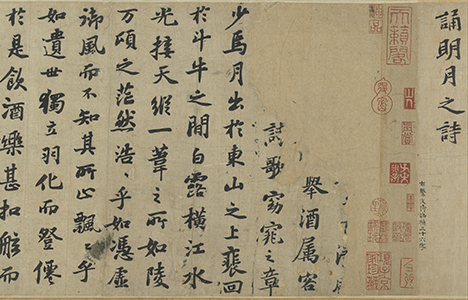 誦明月之詩
三十六字
舉酒屬客
歌窈窕之章
少焉月出於東山之上裵回
於斗牛之間白露橫江水
光接天縱一葦之所如陵
万頃之茫然浩〻乎如憑虛
御風而不知其所止飄〻乎
如遺世獨立羽化而登僊
於是飲酒樂甚扣舷而